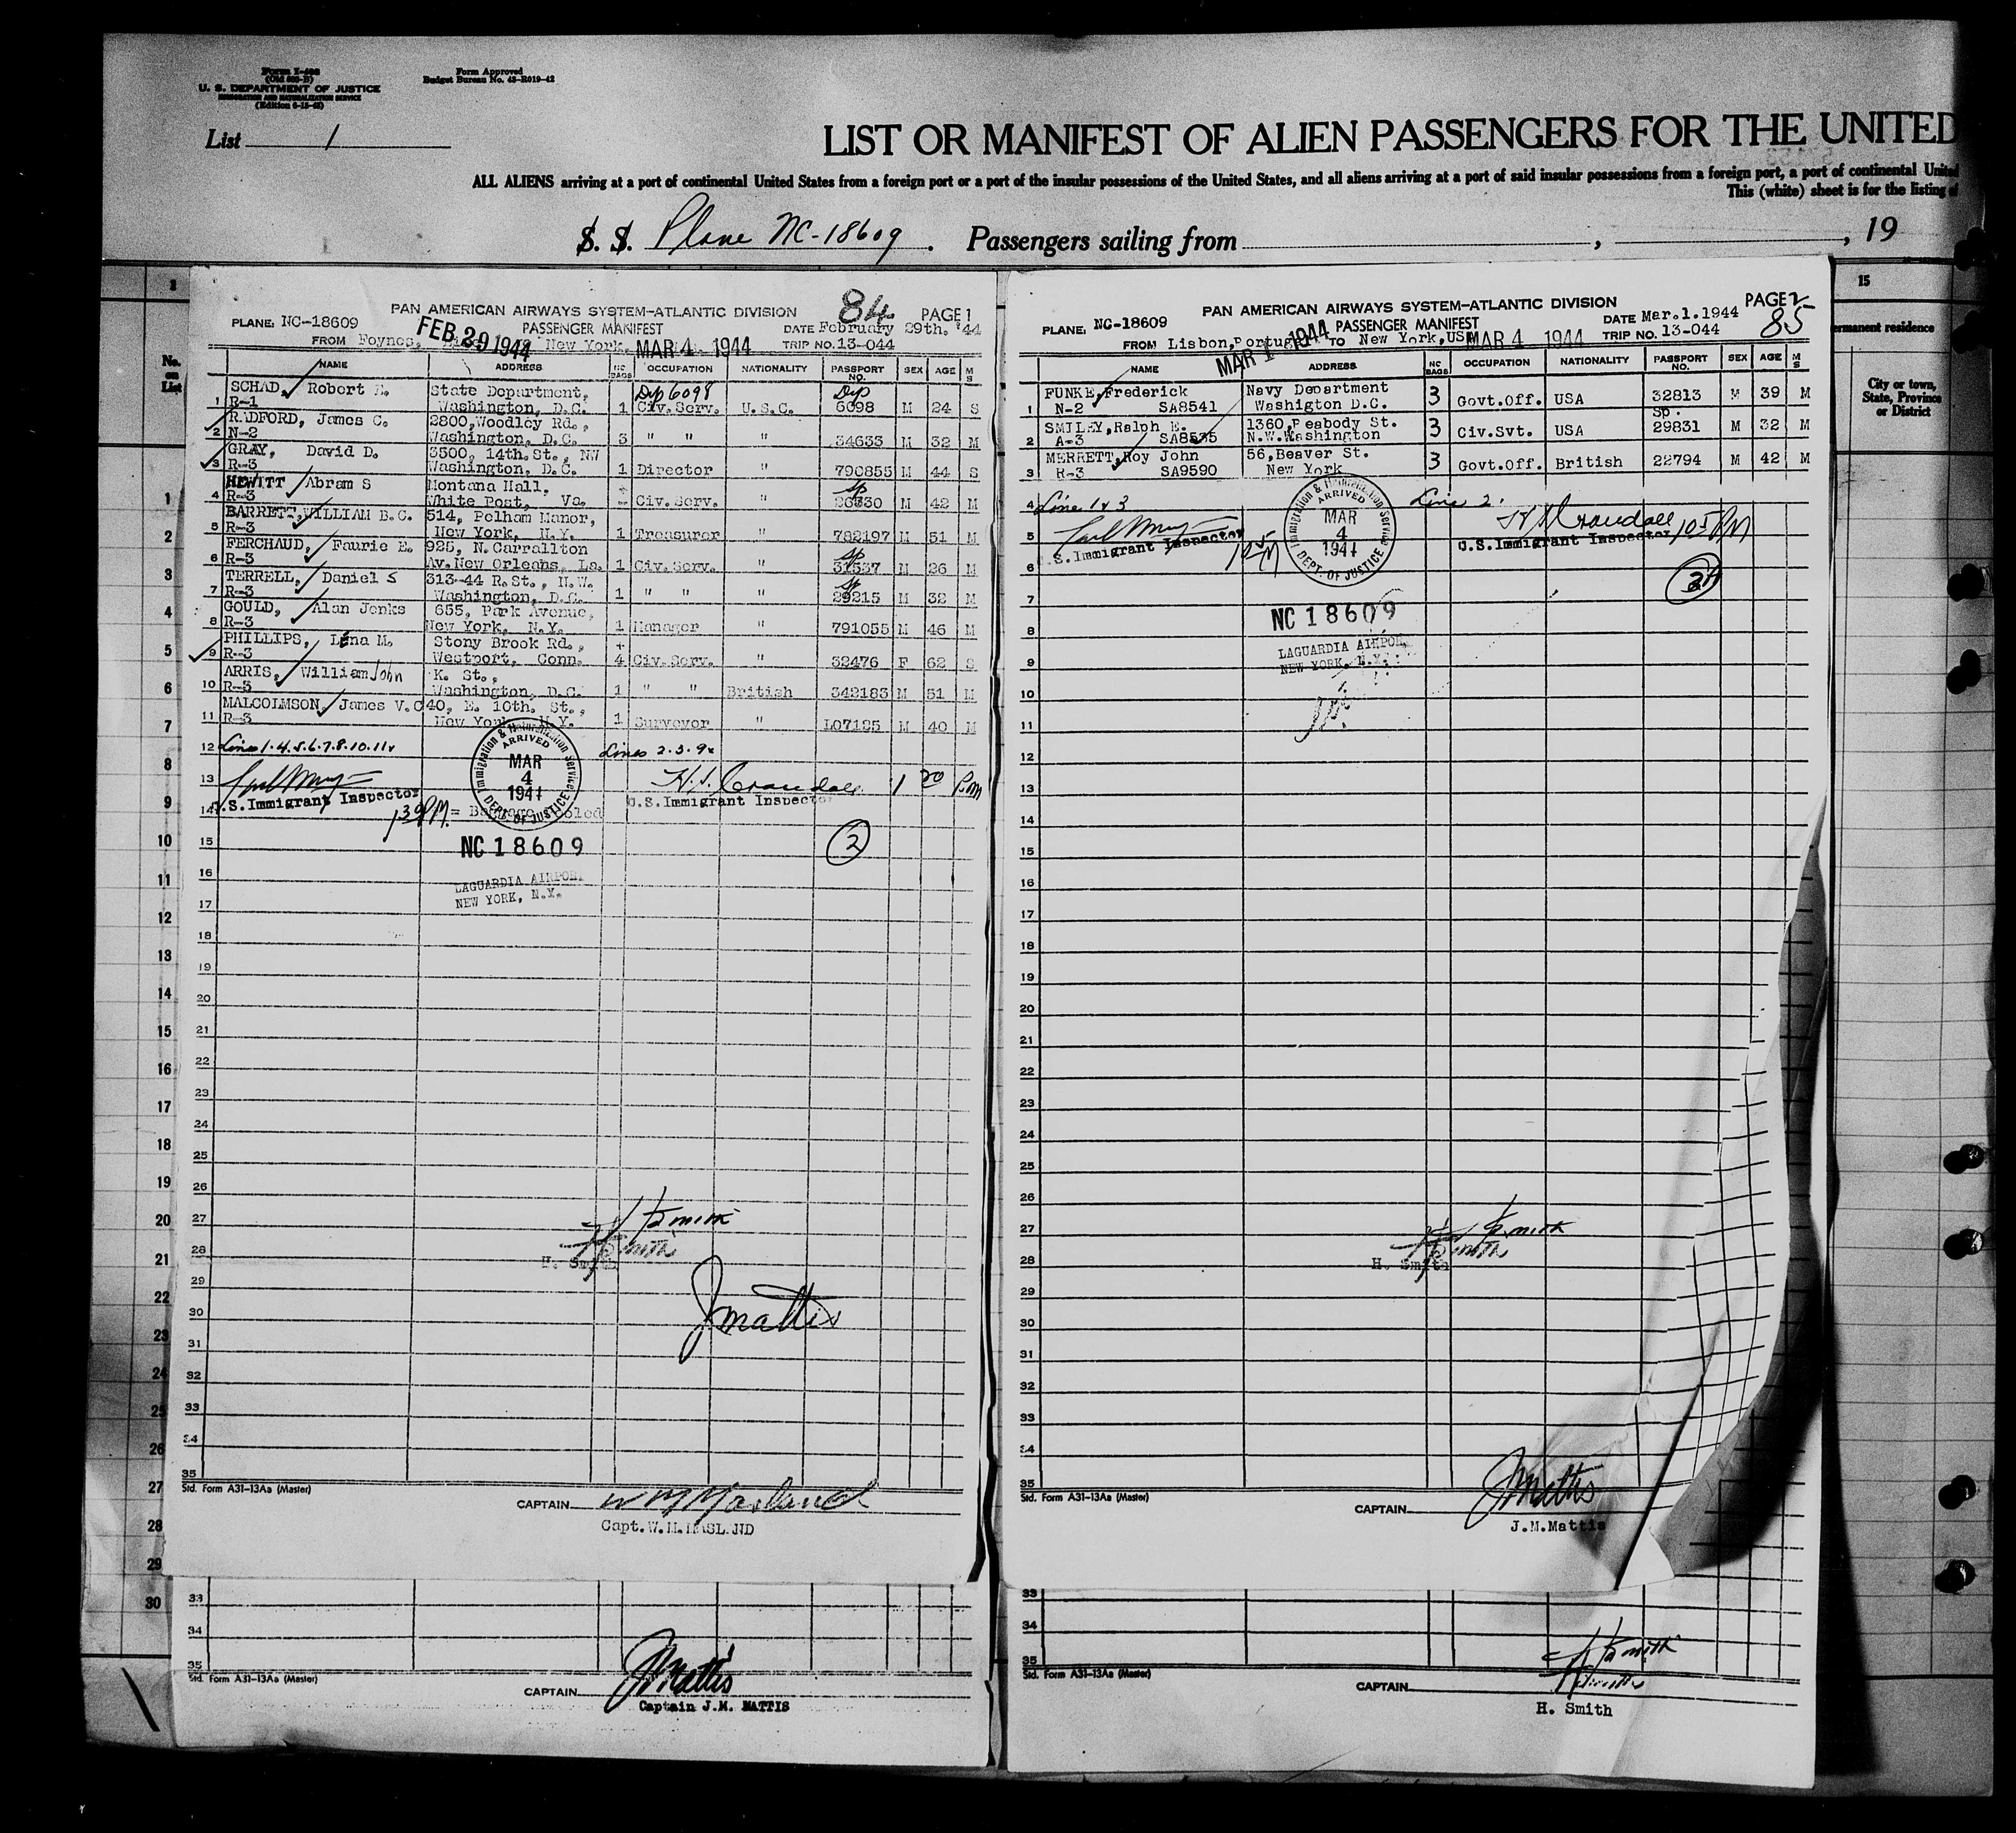 Form I-466
(Old 500-B)
U. S. DEPARTMENT OF JUSTICE
IMMIGRATION AND NATURALIZATION SERVICE
(Edition 6-15-43)
Form Approved
Budget Bureau No. 43-R019-42
List 1
LIST OR MANIFEST OF ALIEN PASSENGERS FOR THE UNITED
ALL ALIENS arriving at a port of continental United States from a foreign port or a port of the insular possessions of the United States, and all aliens arriving at a port of said insular possessions from a foreign port, a port of continental United
This (white) sheet is for the listing of
S. S. Plane NC-18609. Passengers sailing from , , 19
1
No. on List
1
2
3
4
5
6
7
8
9
10
11
12
13
14
15
16
17
18
19
20
21
22
23
24
25
26
27
28
29
30
PAN AMERICAN AIRWAYS SYSTEM-ATLANTIC DIVISION 84 PAGE 1
PLANE: NC-18609 PASSENGER MANIFEST DATE February 29th. '44
FROM Foynes, FEB 29 1944 New York. MAR 4 1944 TRIP NO. 13-044
NAME ADDRESS NO BAGS OCCUPATION NATIONALITY PASSPORT NO. SEX AGE M S
SCHAD, Robert E. State Department, Dip 6098 Dip
1 R-1 Washington, D.C. 1 Civ. Serv. U.S.C. 6098 M 24 S
RADFORD, James C. 2800, Woodley Rd.,
2 N-2 Washington, D.C. 3 " " " 34633 M 32 M
GRAY, David D. 3500, 14th. St., NW
3 R-3 Washington, D.C. 1 Director " 790855 M 44 S
HEWITT Abram S Montana Hall, + Sp
4 R-3 White Post, Va. - Civ. Serv. " 26330 M 42 M
BARRETT, WILLIAM B.C. 514, Pelham Manor,
5 R-3 New York, N.Y. 1 Treasurer " 782197 M 51 M
FERCHAUD, Faurie E. 925, N. Carrallton Sp
6 R-3 Av. New Orleans, La. 1 Civ. Serv. " 31537 M 26 M
TERRELL, Daniel S 313-44 R. St., N.W. Sp
7 R-3 Washington, D.C. 1 " " " 29215 M 32 M
GOULD, Alan Jenks 655, Park Avenue,
8 R-3 New York, N.Y. 1 Manager " 791055 M 46 M
PHILLIPS, Lena M. Stony Brook Rd., +
9 R-3 Westport, Conn. 4 Civ. Serv. " 32476 F 62 S
ARRIS, William John K. St.,
10 R-3 Washington, D.C. 1 " " British 342183 M 51 M
MALCOLMSON, James V.C 40, E. 10th. St.,
11 R-3 New York, N.Y. 1 Surveyor " L07125 M 40 M
12 Lines 1.4.5.6.7.8.10.11 Lines 2.3.9
Immigration & Naturalization Service ARRIVED MAR 4 1944 DEPT. OF JUSTICE
13 H.S. Crandall 1 20 Pm
U.S. Immigrant Inspector U.S. Immigrant Inspector
14 130PM =
15 NC 18609 2
16 LAGUARDIA AIRPORT
17 NEW YORK, N.Y.
18
19
20
21
22
23
24
25
26
27 H Smith
H Smith
28 H. Smith
29
30 J Mattis
31
32
33
34
35
Std. Form A31-13Aa (Master)
CAPTAIN W M Masland
Capt. W.M. MASLAND
33
34
35
Std. Form A31-13Aa (Master)
CAPTAIN J Mattis
Captain J.M. MATTIS
PAN AMERICAN AIRWAYS SYSTEM-ATLANTIC DIVISION PAGE 2
PLANE: NC-18609 PASSENGER MANIFEST DATE Mar.1.1944 85
FROM Lisbon, Portugal MAR 1 1944 TO New York, USA MAR 4 1944 TRIP NO. 13-044
NAME ADDRESS NO BAGS OCCUPATION NATIONALITY PASSPORT NO. SEX AGE M S
FUNKE, Frederick Navy Department
1 N-2 SA8541 Washigton D.C. 3 Govt.Off. USA 32813 M 39 M
SMILEY, Ralph E. 1360, Peabody St. Sp.
2 A-3 SA8535 N.W. Washington 3 Civ.Svt. USA 29831 M 32 M
MERRETT, Roy John 56, Beaver St.
3 R-3 SA9590 New York 3 Govt.Off. British 22794 M 42 M
4 Line 1 & 3 Line 2.
Immigration & Naturalization Service ARRIVED MAR 4 1944 DEPT. OF JUSTICE
5 H S Crandall 105 PM
U.S. Immigrant Inspector U.S. Immigrant Inspector
6
7
8 NC 18609
9 LAGUARDIA AIRPORT
NEW YORK, N.Y.
10
11
12
13
14
15
16
17
18
19
20
21
22
23
24
25
26
27 H Smith
H Smith
28 H. Smith
29
30
31
32
33
34
35
Std. Form A31-13Aa (Master)
CAPTAIN J Mattis
J.M.Mattis
33
34
35
Std. Form A31-13Aa (Master)
H Smith
CAPTAIN
H. Smith
15
ermanent residence
City or town,
State, Province
or District